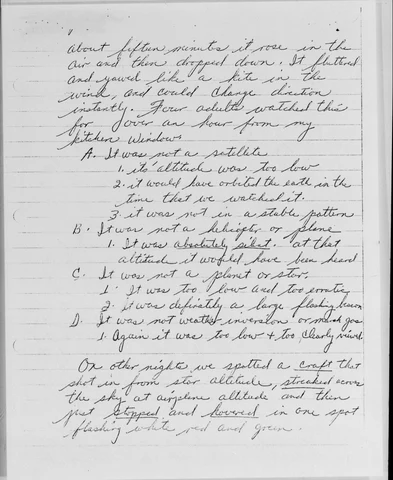 about fifteen minutes it rose in the
air and then dropped down. It fluttered
and yawed like a kite in the
wind, and could change direction
instantly. Four adults watched this
for over an hour from my
kitchen window.
A. It was not a satellite
1. its altitude was too low
2. it would have orbited the earth in the
time that we watched it.
3. it was not in a stable pattern
B. It was not a helicopter or plane
1. It was absolutely silent. at that
altitude it would have been heard
C. It was not a planet or star.
1. It was too low and too erratic
2. it was definitely a large flashing
D. It was not weather inversion or marsh gas
1. Again it was too low + too clearly
On other nights we spotted a craft that
shot in from star altitude, streaked across
the sky at airplane altitude and then
just stopped and hovered in one spot
flashing white red and green.